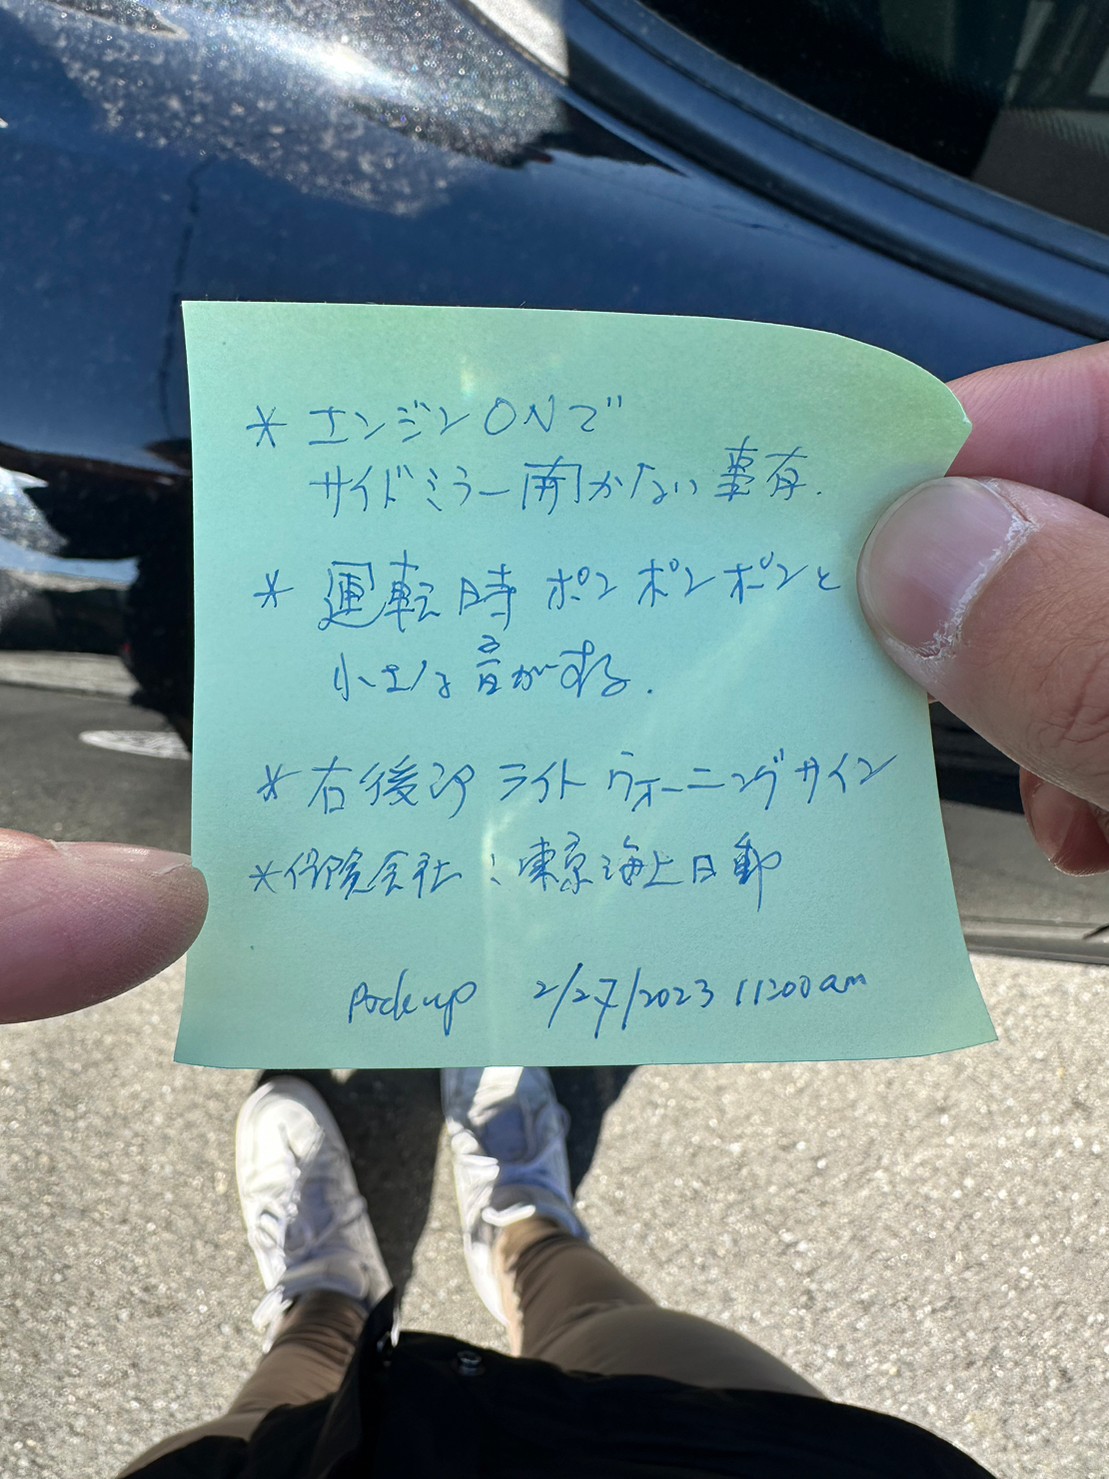 * エンジンONで
サイドミラー開かない事有.
* 運転時 ポンポンポンと
小さな音がする.
* 右後ろ ライト ウォーニングサイン
* 保険会社 : 東京海上日動
Pickup 2/27/2023 11:00am